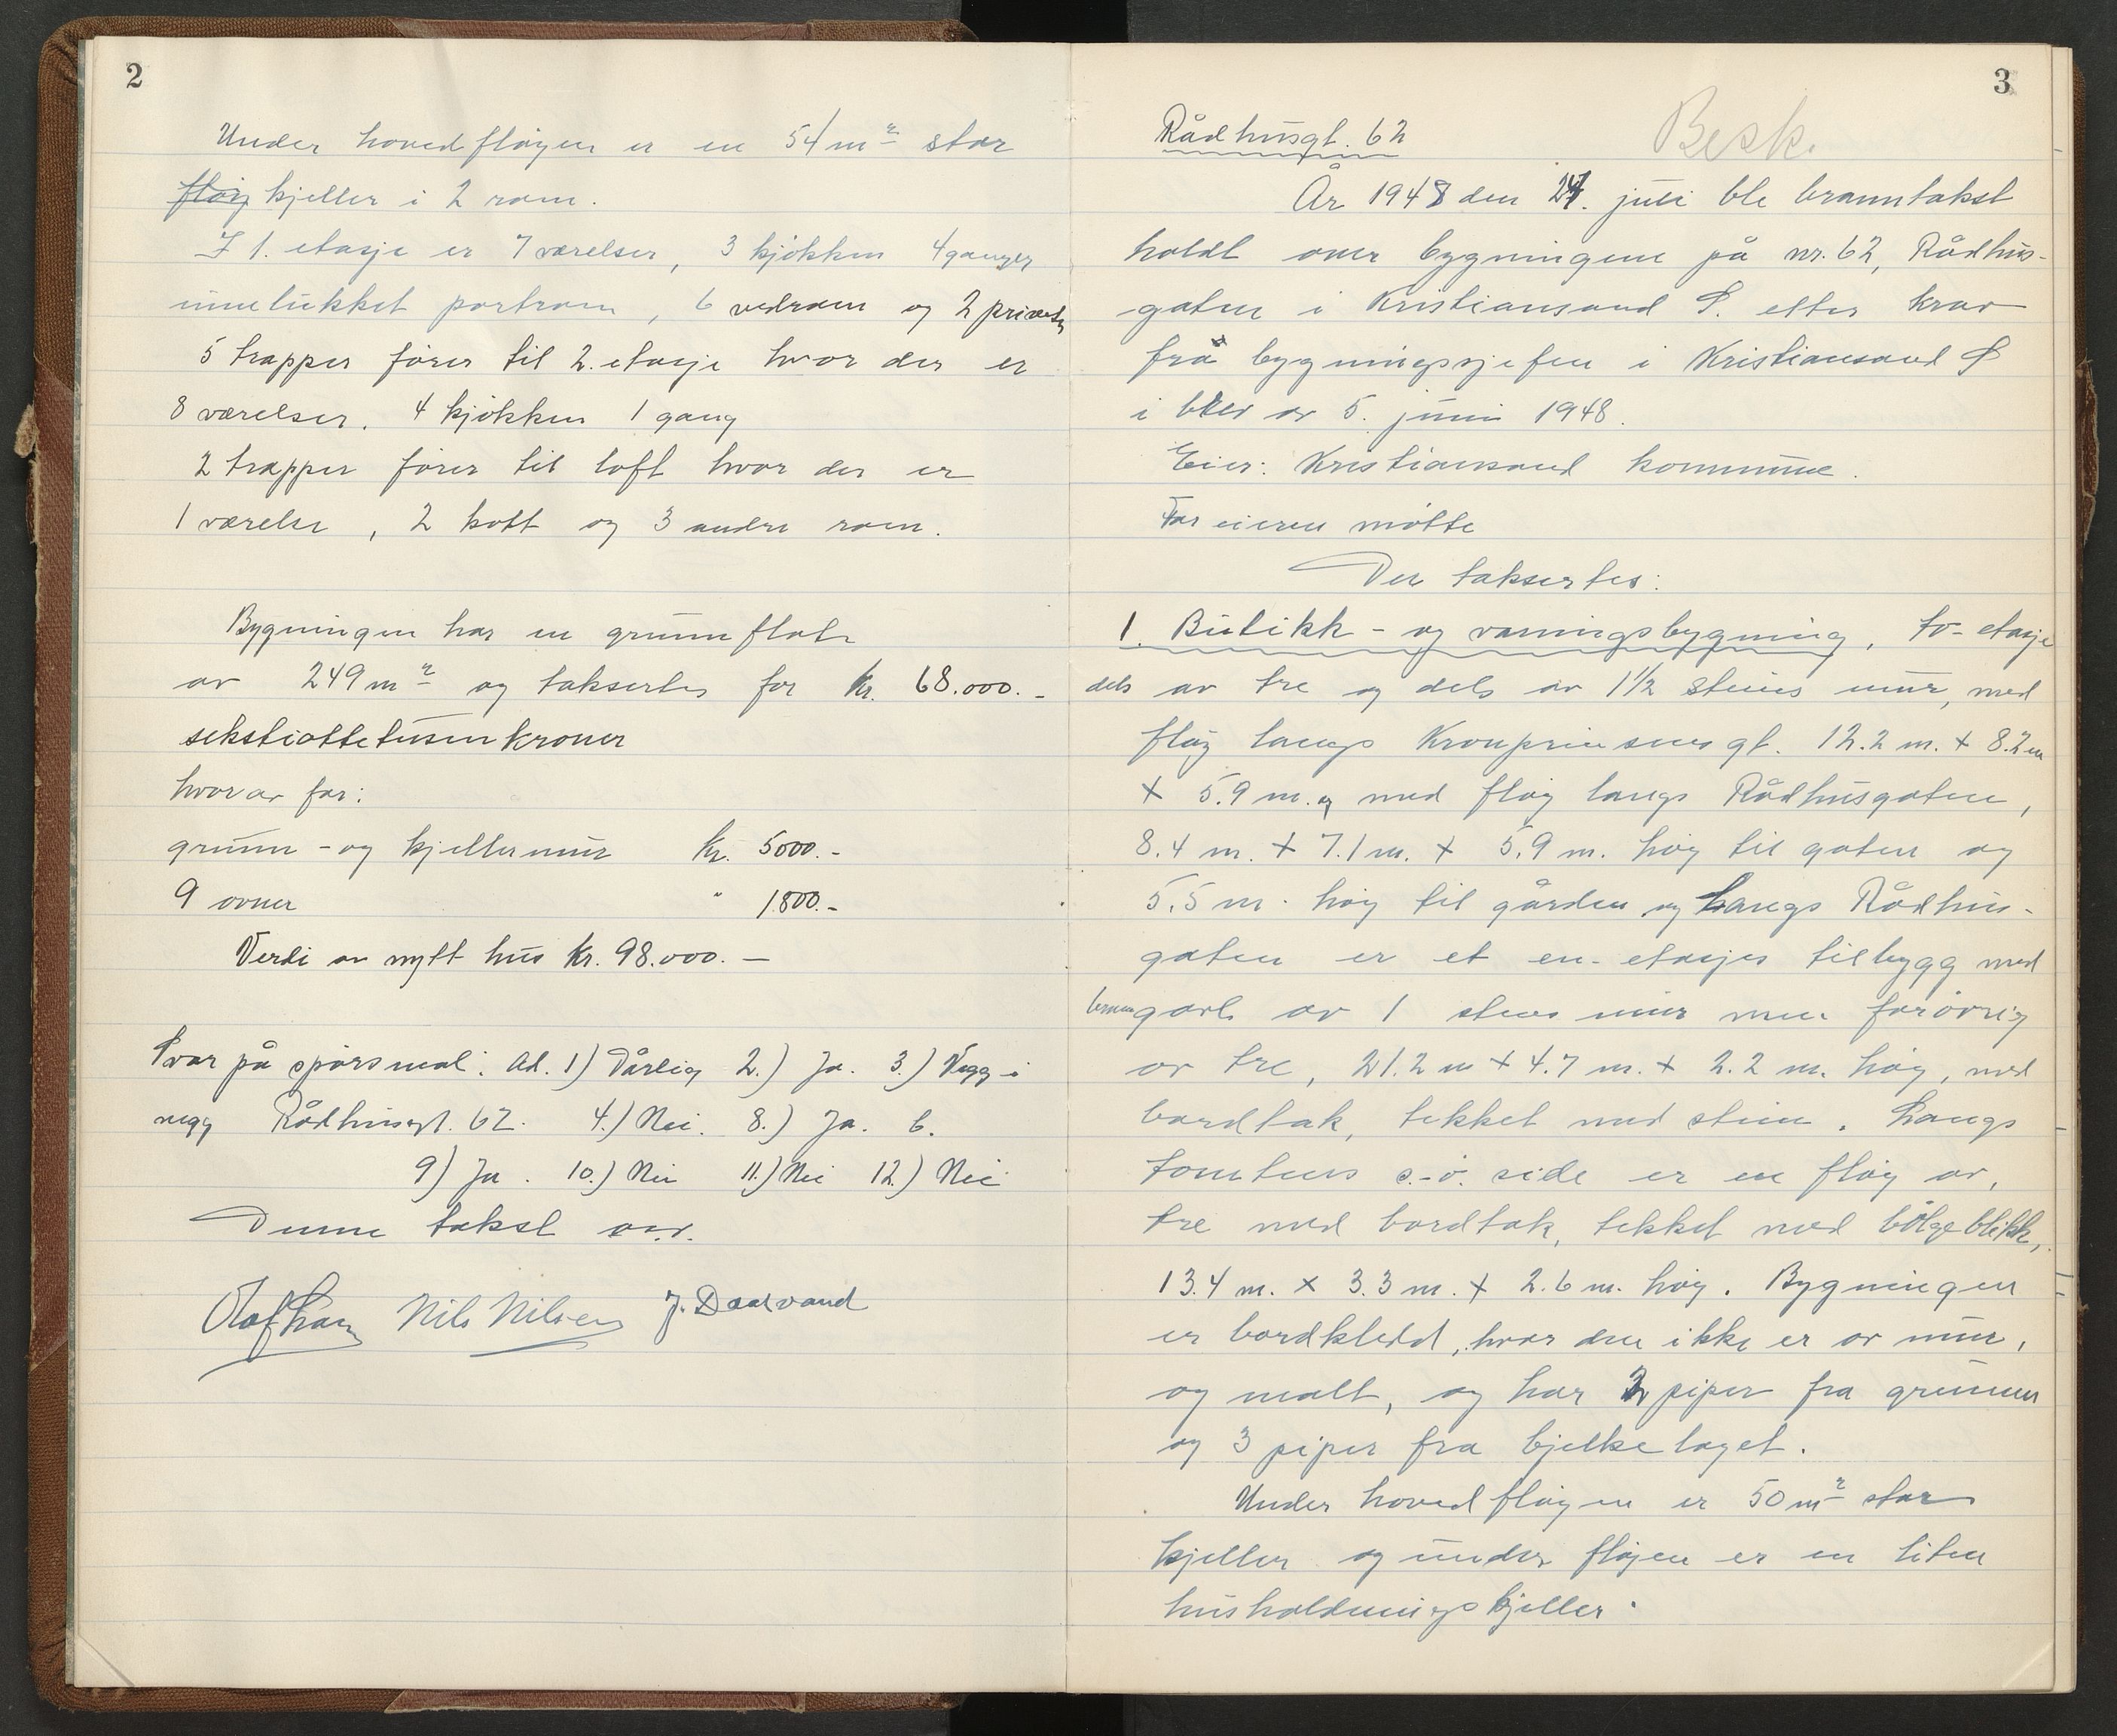 2
Under hovedfløyen er en 54 m² stor
fløy kjeller i 2 rom.
I 1. etasje er 7 værelser, 3 kjøkken 4 ganger
innelukket portrom, 6 vedrom og 2 priveter
5 trapper fører til 2. etasje hvor der er
8 værelser. 4 kjøkken 1 gang
2 trapper fører til loft hvor der er
1 værelse, 2 kott og 3 andre rom.
Bygningen har en grunnflate
av 249 m² og taksertes for kr. 68.000.-
sekstiåttetusen kroner
hvorav for:
grunn- og kjellermur kr. 5000.-
9 ovner " 1800.-
Verdi av nytt hus kr. 98.000.—
Svar på spørsmål: ad. 1) Dårlig 2.) Ja. 3.) Vegg i
vegg Rådhusgt. 62. 4.) Nei. 8.) Ja. 6.
9) Ja. 10.) Nei 11.) Nei 12.) Nei
Denne takst
Olaf Nils Nilsen J. Daasvand
3
Rådhusgt. 62 Besk.
År 1948 den 24. juli ble branntakst
holdt over bygningene på nr. 62, Rådhus-
gaten i Kristiansand S. etter krav
fra bygningssjefen i Kristiansand S
i brev av 5. juni 1948.
Eier: Kristiansand kommune.
For eieren møtte
Der taksertes:
1. Butikk- og våningsbygning, to-etasje
dels av tre og dels av 1½ steins mur, med
fløy langs Kronprinsensgt. 12.2 m. x 8.2 m
x 5.9 m. og med fløy langs Rådhusgaten,
8.4 m. x 7.1 m. x 5.9 m. høy til gaten og
5.5 m. høy til gården og langs Rådhus-
gaten er et en-etasjes tilbygg med
branngavl av 1 stens mur men forøvrig
av tre, 21.2 m x 4.7 m. x 2.2 m. høy, med
bordtak, tekket med stein. Langs
tomtens s.-ø. side er en fløy av,
tre med bordtak, tekket med bølgeblikk,
13.4 m. x 3.3 m. x 2.6 m. høy. Bygningen
er bordkledd, hvor den ikke er av mur,
og malt, og har 2 piper fra grunnen
og 3 piper fra bjelkelaget.
Under hovedfløyen er 50 m² stor
kjeller og under fløyen er en liten
husholdningskjeller.